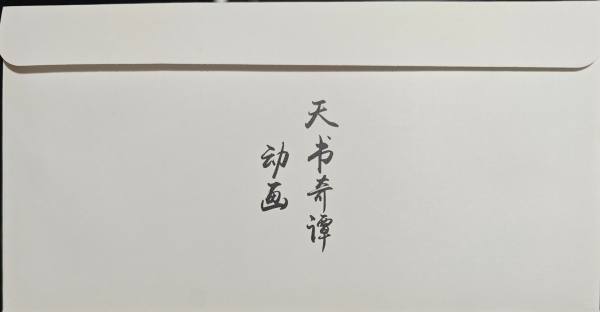 天书奇谭
动画